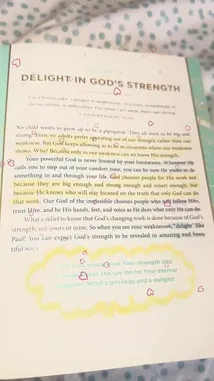 DELIGHT IN GOD'S STRENGTH
No child wants to grow up to be a pipsqueak. They all want to be big and
strong. Even we adults prefer operating out of our strength rather than our
weakness. But God keeps allowing us to be in situations where our weakness
shows. Why? Because only in our weakness can we know His strength.
Your powerful God is never limited by your humanness. Whenever He
calls you to step out of your comfort zone, you can be sure He wants to do
something in and through your life. God chooses people for His work not
because they are big enough and strong enough and smart enough, but
because He knows who will stay focused on the truth that only God can do
that work. Our God of the impossible chooses people who will follow Him,
trust Him, and be His hands, feet, and voice as He does what only He can do.
What a relief to know that God's changing work is done because of God's
strength, not yours or mine. So when you see your weakness, "delight" like
Paul! You can expect God's strength to be revealed in amazing and beau-
tiful ways.
Your strength into
and use me for Your eternal
What a privilege and a delight!